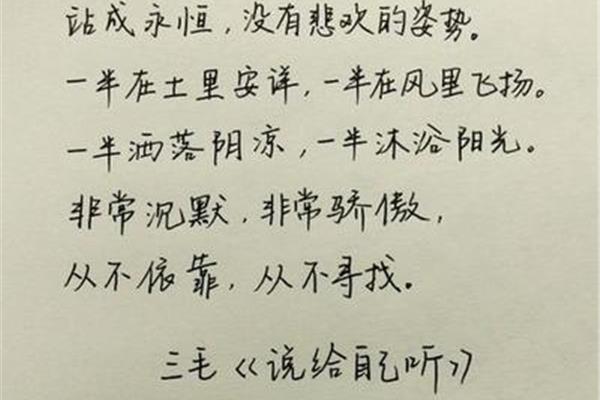 站成永恒，没有悲欢的姿势。
一半在土里安详，一半在风里飞扬。
一半洒落阴凉，一半沐浴阳光。
非常沉默，非常骄傲，
从不依靠，从不寻找。
三毛《说给自己听》